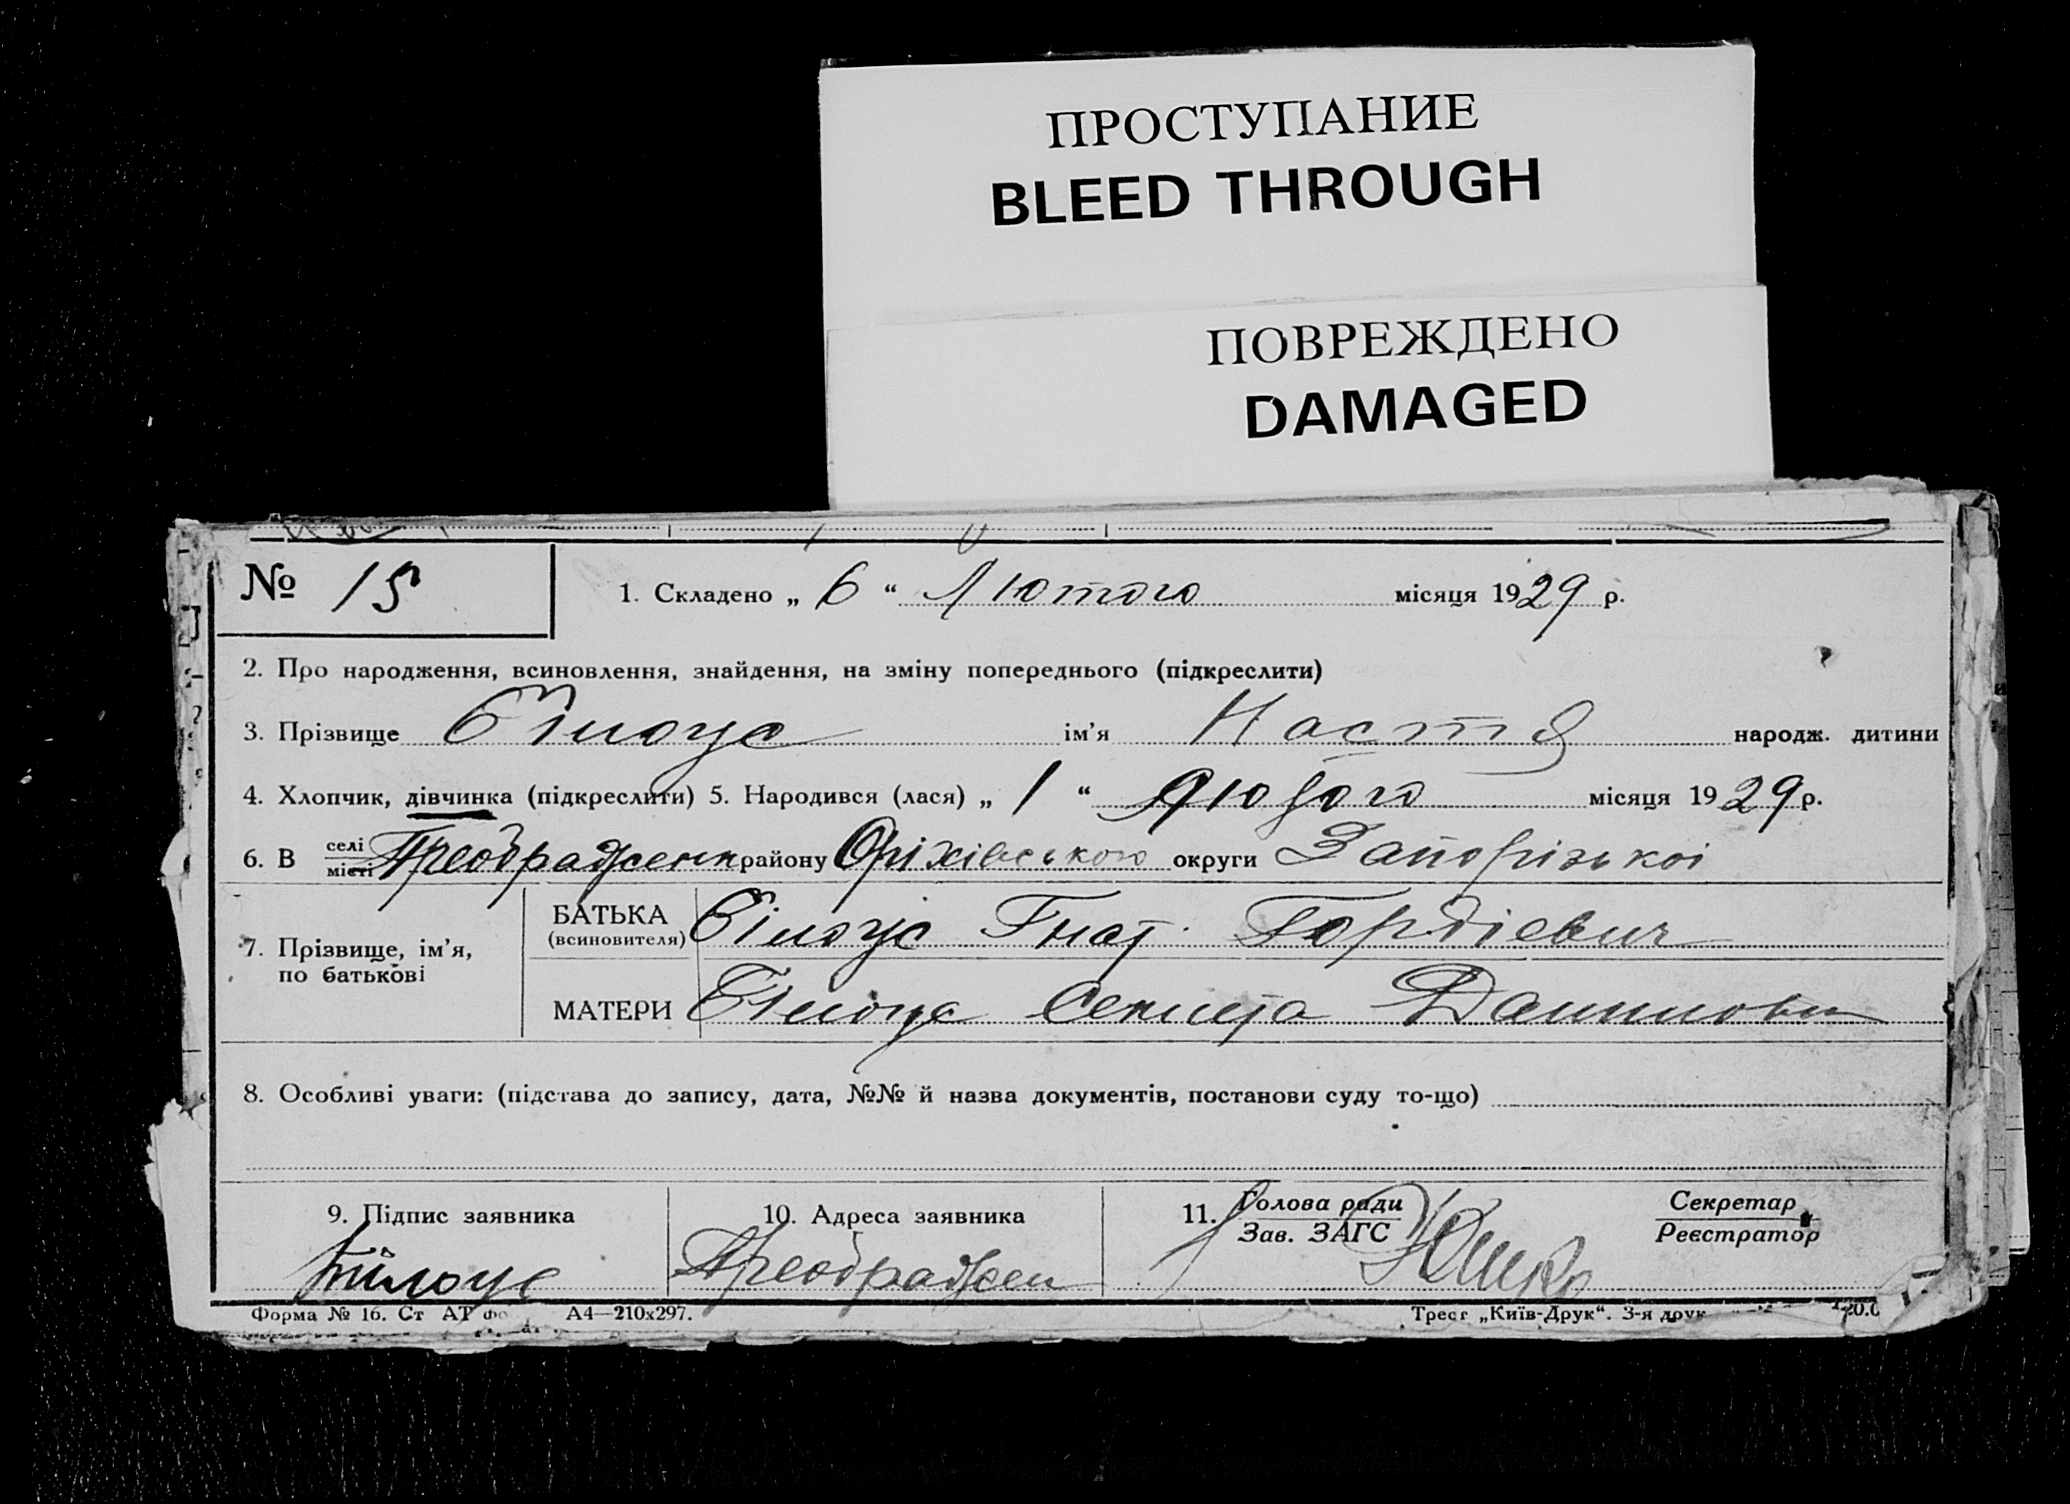 ПРОСТУПАНИЕ
BLEED THROUGH
ПОВРЕЖДЕНО
DAMAGED
№ 15
1. Складено „ 6 “ Лютого місяця 1929 р.
2. Про народження, всиновлення, знайдення, на зміну попереднього (підкреслити)
3. Прізвище Білоус ім’я Настя народж. дитини
4. Хлопчик, дівчинка (підкреслити) 5. Народився (лася) „ 1 “ місяця 1929 р.
6. В селі місті Преображенк району Оріхівського округи Запорізькоі
7. Прізвище, ім’я, по батькові
БАТЬКА (всиновителя) Білоус Гнат Гордієвич
МАТЕРИ Білоус
8. Особливі уваги: (підстава до запису, дата, №№ й назва документів, постанови суду то-що)
9. Підпис заявника
10. Адреса заявника
11. Голова ради
Зав. ЗАГС
Секретар
Реєстратор
Білоус
Преображен
Форма № 16. Ст АТ фо А4—210х297.
Трест „Київ-Друк“. 3-я друк